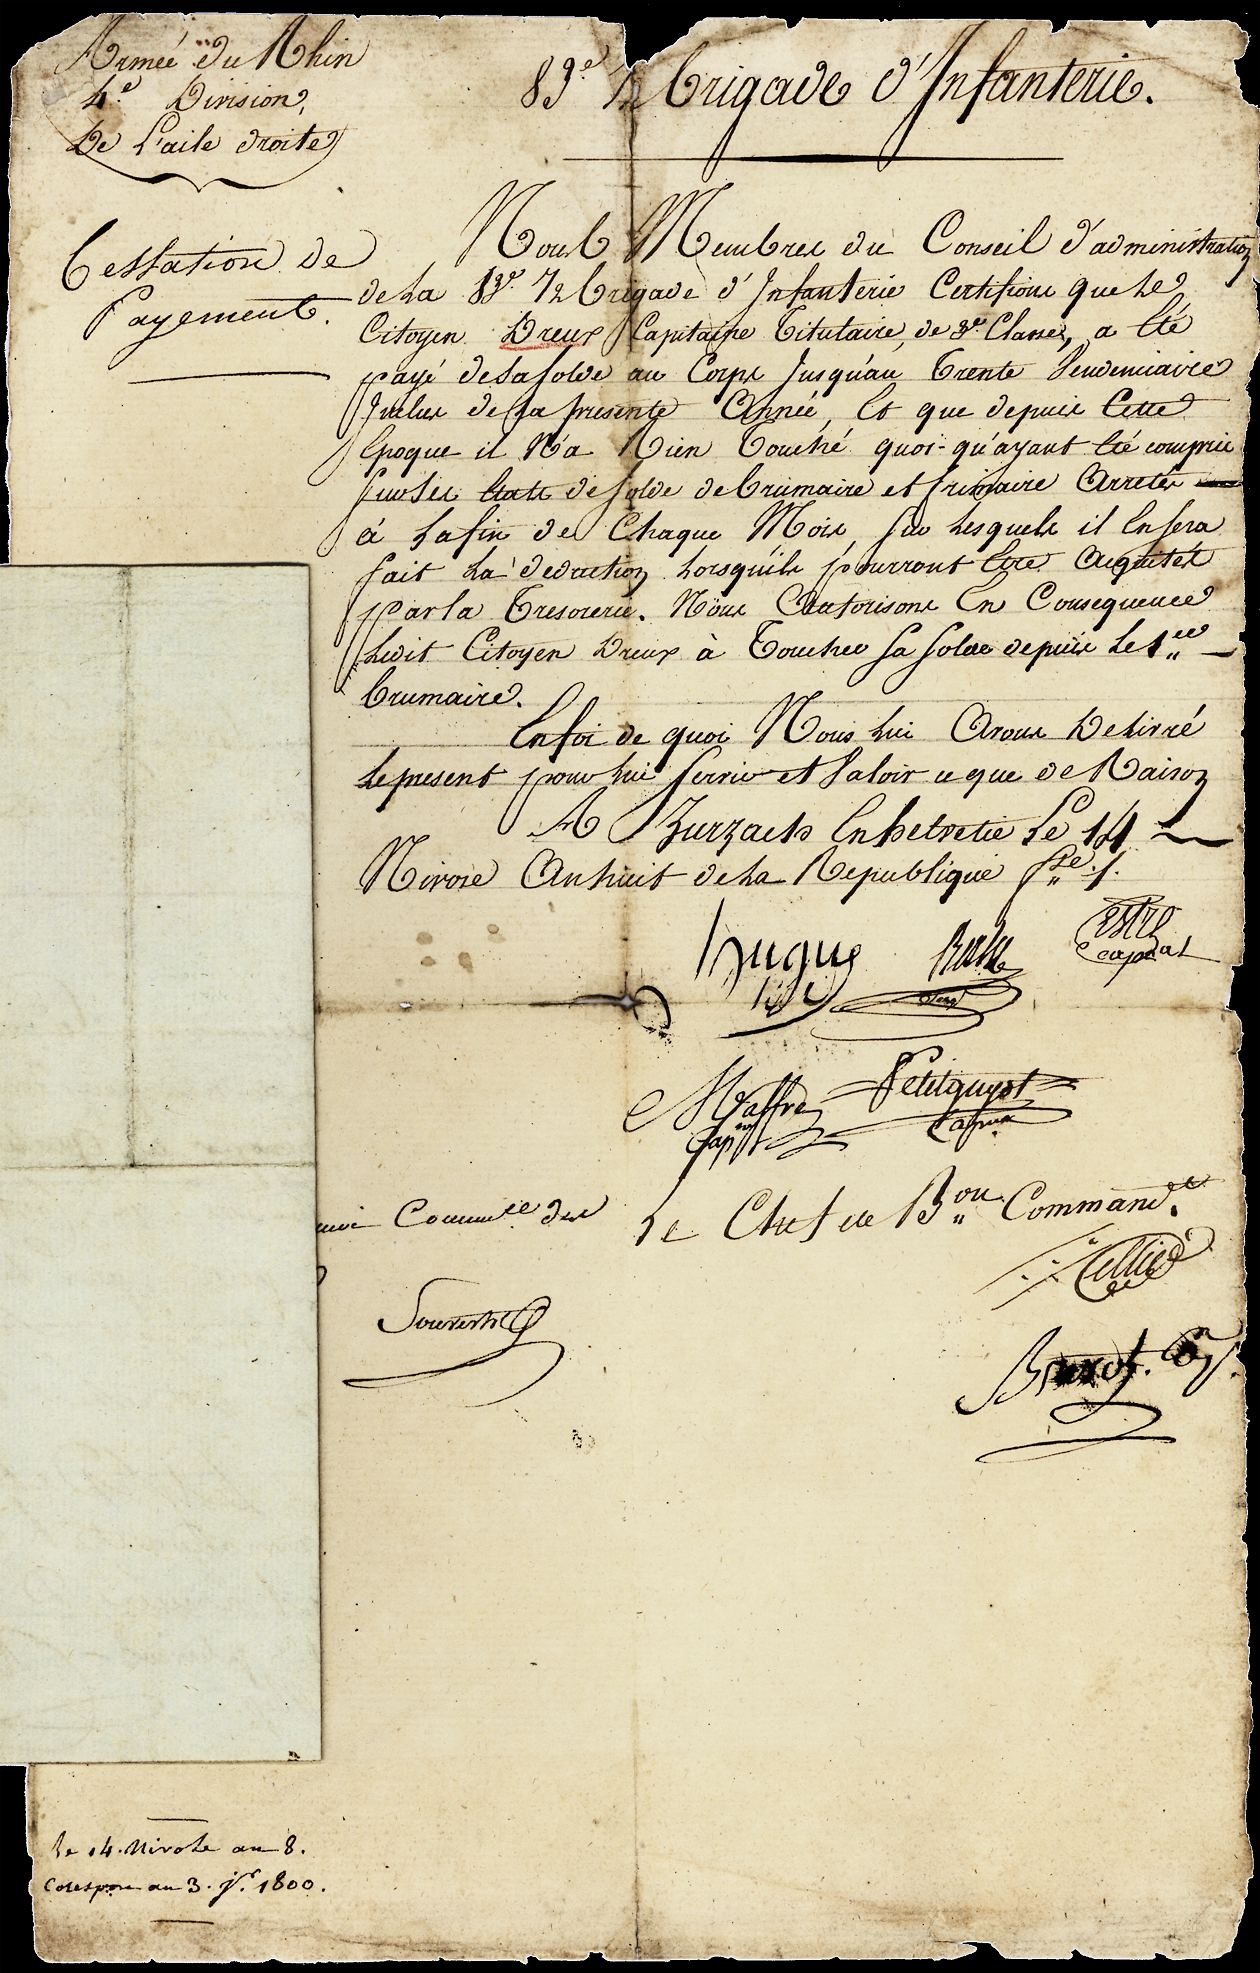 Armée du Rhin
4.e Division,
De L'aile droite
83.e 1/2 brigade d'Infanterie.
Cessation de
Payement.
Nous Membres du Conseil d'administration
de la 83.e 1/2 brigade d'Infanterie Certifions que Le
Citoyen Dreux Capitaine Titulaire, de 3.e Classe, a Eté
payé de Sa Solde au Corps Jusqu'au Trente Vendemiaire
Inclus de La presente Année, Et que depuis Cette
Epoque il N'a Rien Touché quoi-qu'ayant Eté compris
Sur Les Etats de Solde de brumaire et frimaire Arretés
à La fin de Chaque Mois, Sur Lesquels il En sera
fait La deduction Lorsqu'ils pourront Etre Acquités
par La Tresorerie. Nous Autorisons En Consequence
Ledit Citoyen Dreux à Toucher Sa Solde depuis Le 1.er
brumaire.
En foi de quoi Nous Lui Avons Delivré
Le present pour Lui Servir et Valoir ce que de Raison
A Zurzach En helvetie Le 14
Nivose An huit de La Republique f.se ./.
hugue
Capral
Maffre
Cap.ne
Petitguyot
Comm.re des
Le Chef de B.on Command.t
Souvestre
Le 14. Nivose an 8.
Corespon au 3. j.er 1800.